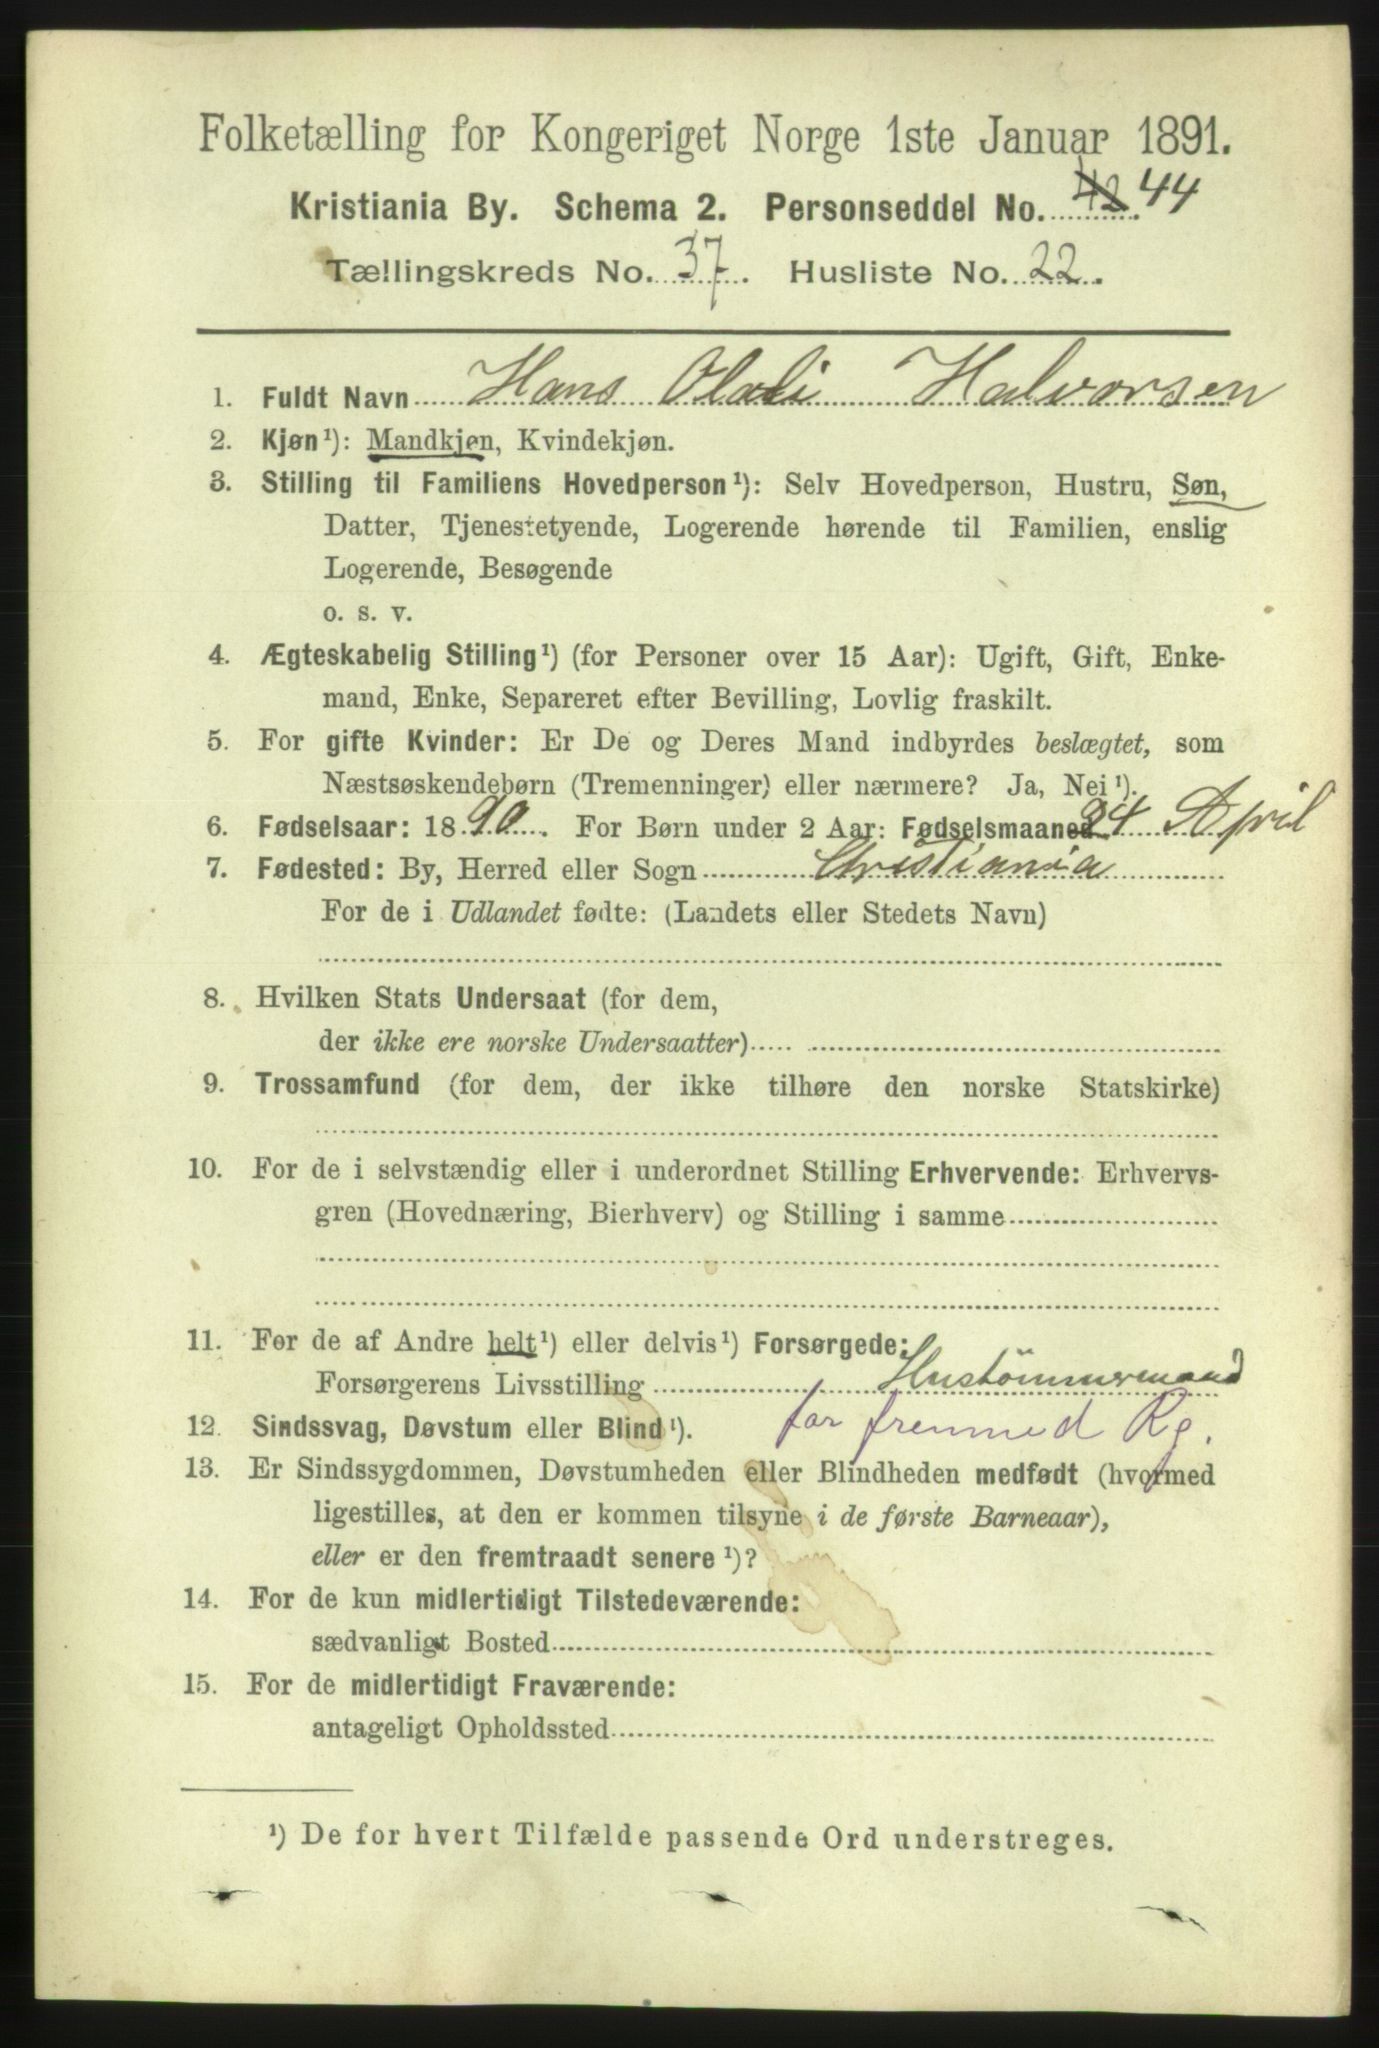 Folketælling for Kongeriget Norge 1ste Januar 1891.
Kristiania By. Schema 2. Personseddel No. 42 44
Tællingskreds No. 37. Husliste No. 22.
1. Fuldt Navn Hans Halvorsen
2. Kjøn¹): Mandkjøn, Kvindekjøn.
3. Stilling til Familiens Hovedperson¹): Selv Hovedperson, Hustru, Søn,
Datter, Tjenestetyende, Logerende hørende til Familien, enslig
Logerende, Besøgende
o. s. v.
4. Ægteskabelig Stilling¹) (for Personer over 15 Aar): Ugift, Gift, Enke-
mand, Enke, Separeret efter Bevilling, Lovlig fraskilt.
5. For gifte Kvinder: Er De og Deres Mand indbyrdes beslægtet, som
Næstsøskendebørn (Tremenninger) eller nærmere? Ja, Nei¹).
6. Fødselsaar: 1890. For Børn under 2 Aar: Fødselsmaaned 24 April
7. Fødested: By, Herred eller Sogn Christiania
For de i Udlandet fødte: (Landets eller Stedets Navn)
8. Hvilken Stats Undersaat (for dem,
der ikke ere norske Undersaatter)
9. Trossamfund (for dem, der ikke tilhøre den norske Statskirke)
10. For de i selvstændig eller i underordnet Stilling Erhvervende: Erhvervs-
gren (Hovednæring, Bierhverv) og Stilling i samme
11. For de af Andre helt¹) eller delvis¹) Forsørgede:
Forsørgerens Livsstilling Hustømmermand
for fremmed Rg.
12. Sindssvag, Døvstum eller Blind¹).
13. Er Sindssygdommen, Døvstumheden eller Blindheden medfødt (hvormed
ligestilles, at den er kommen tilsyne i de første Barneaar),
eller er den fremtraadt senere¹)?
14. For de kun midlertidigt Tilstedeværende:
sædvanligt Bosted
15. For de midlertidigt Fraværende:
antageligt Opholdssted
¹) De for hvert Tilfælde passende Ord understreges.